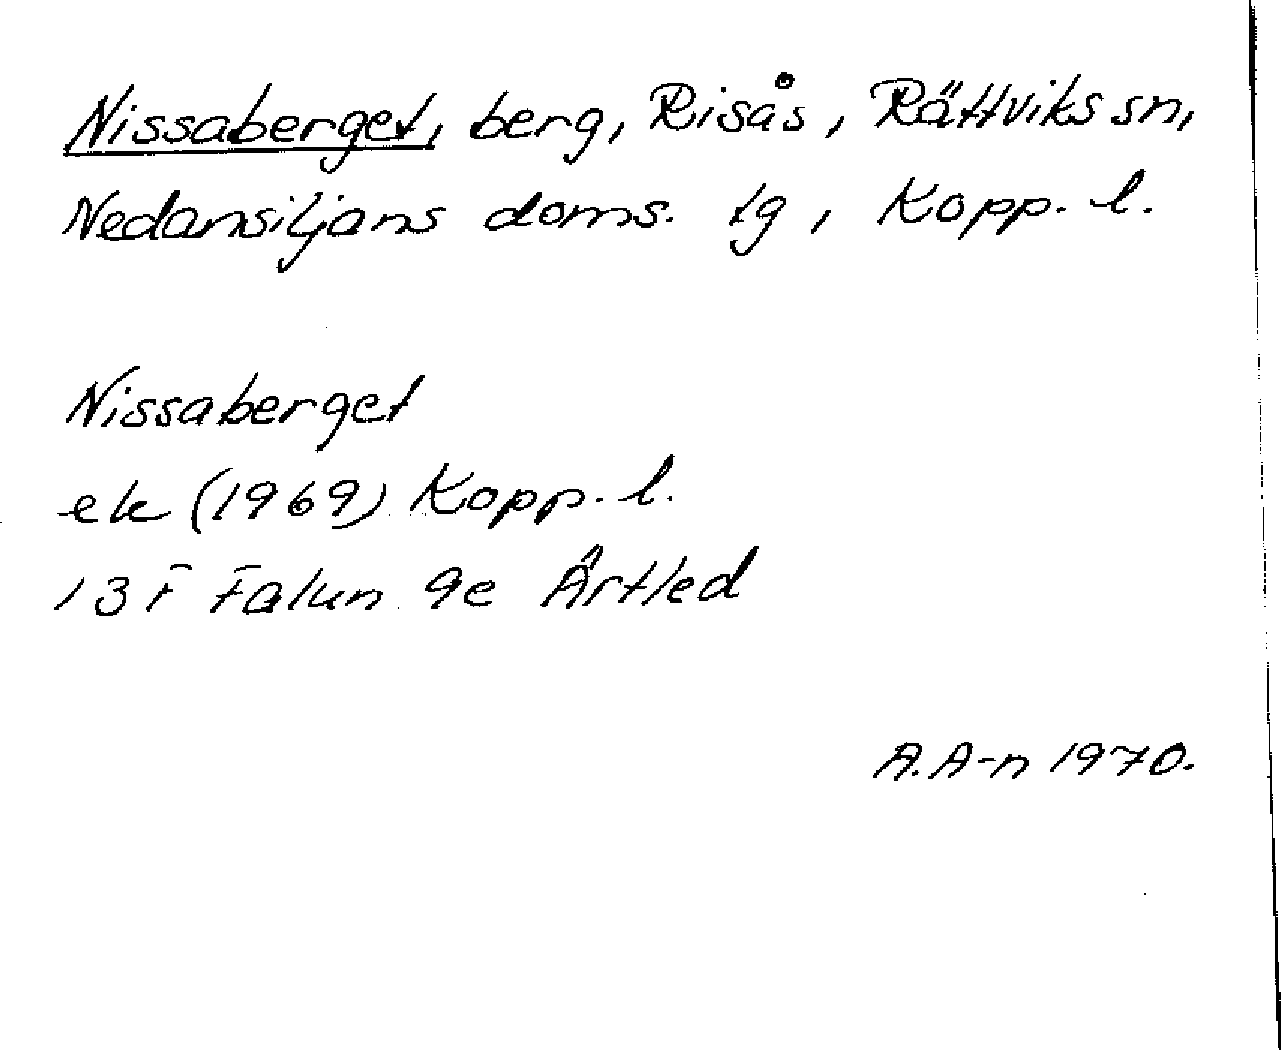 Nissaberget, berg, Risås, Rättviks sn,
Nedansiljans doms. tg, Kopp. l.
Nissaberget
ek (1969) Kopp. l.
13 F Falun 9e Ärtled
A.A-n 1970.